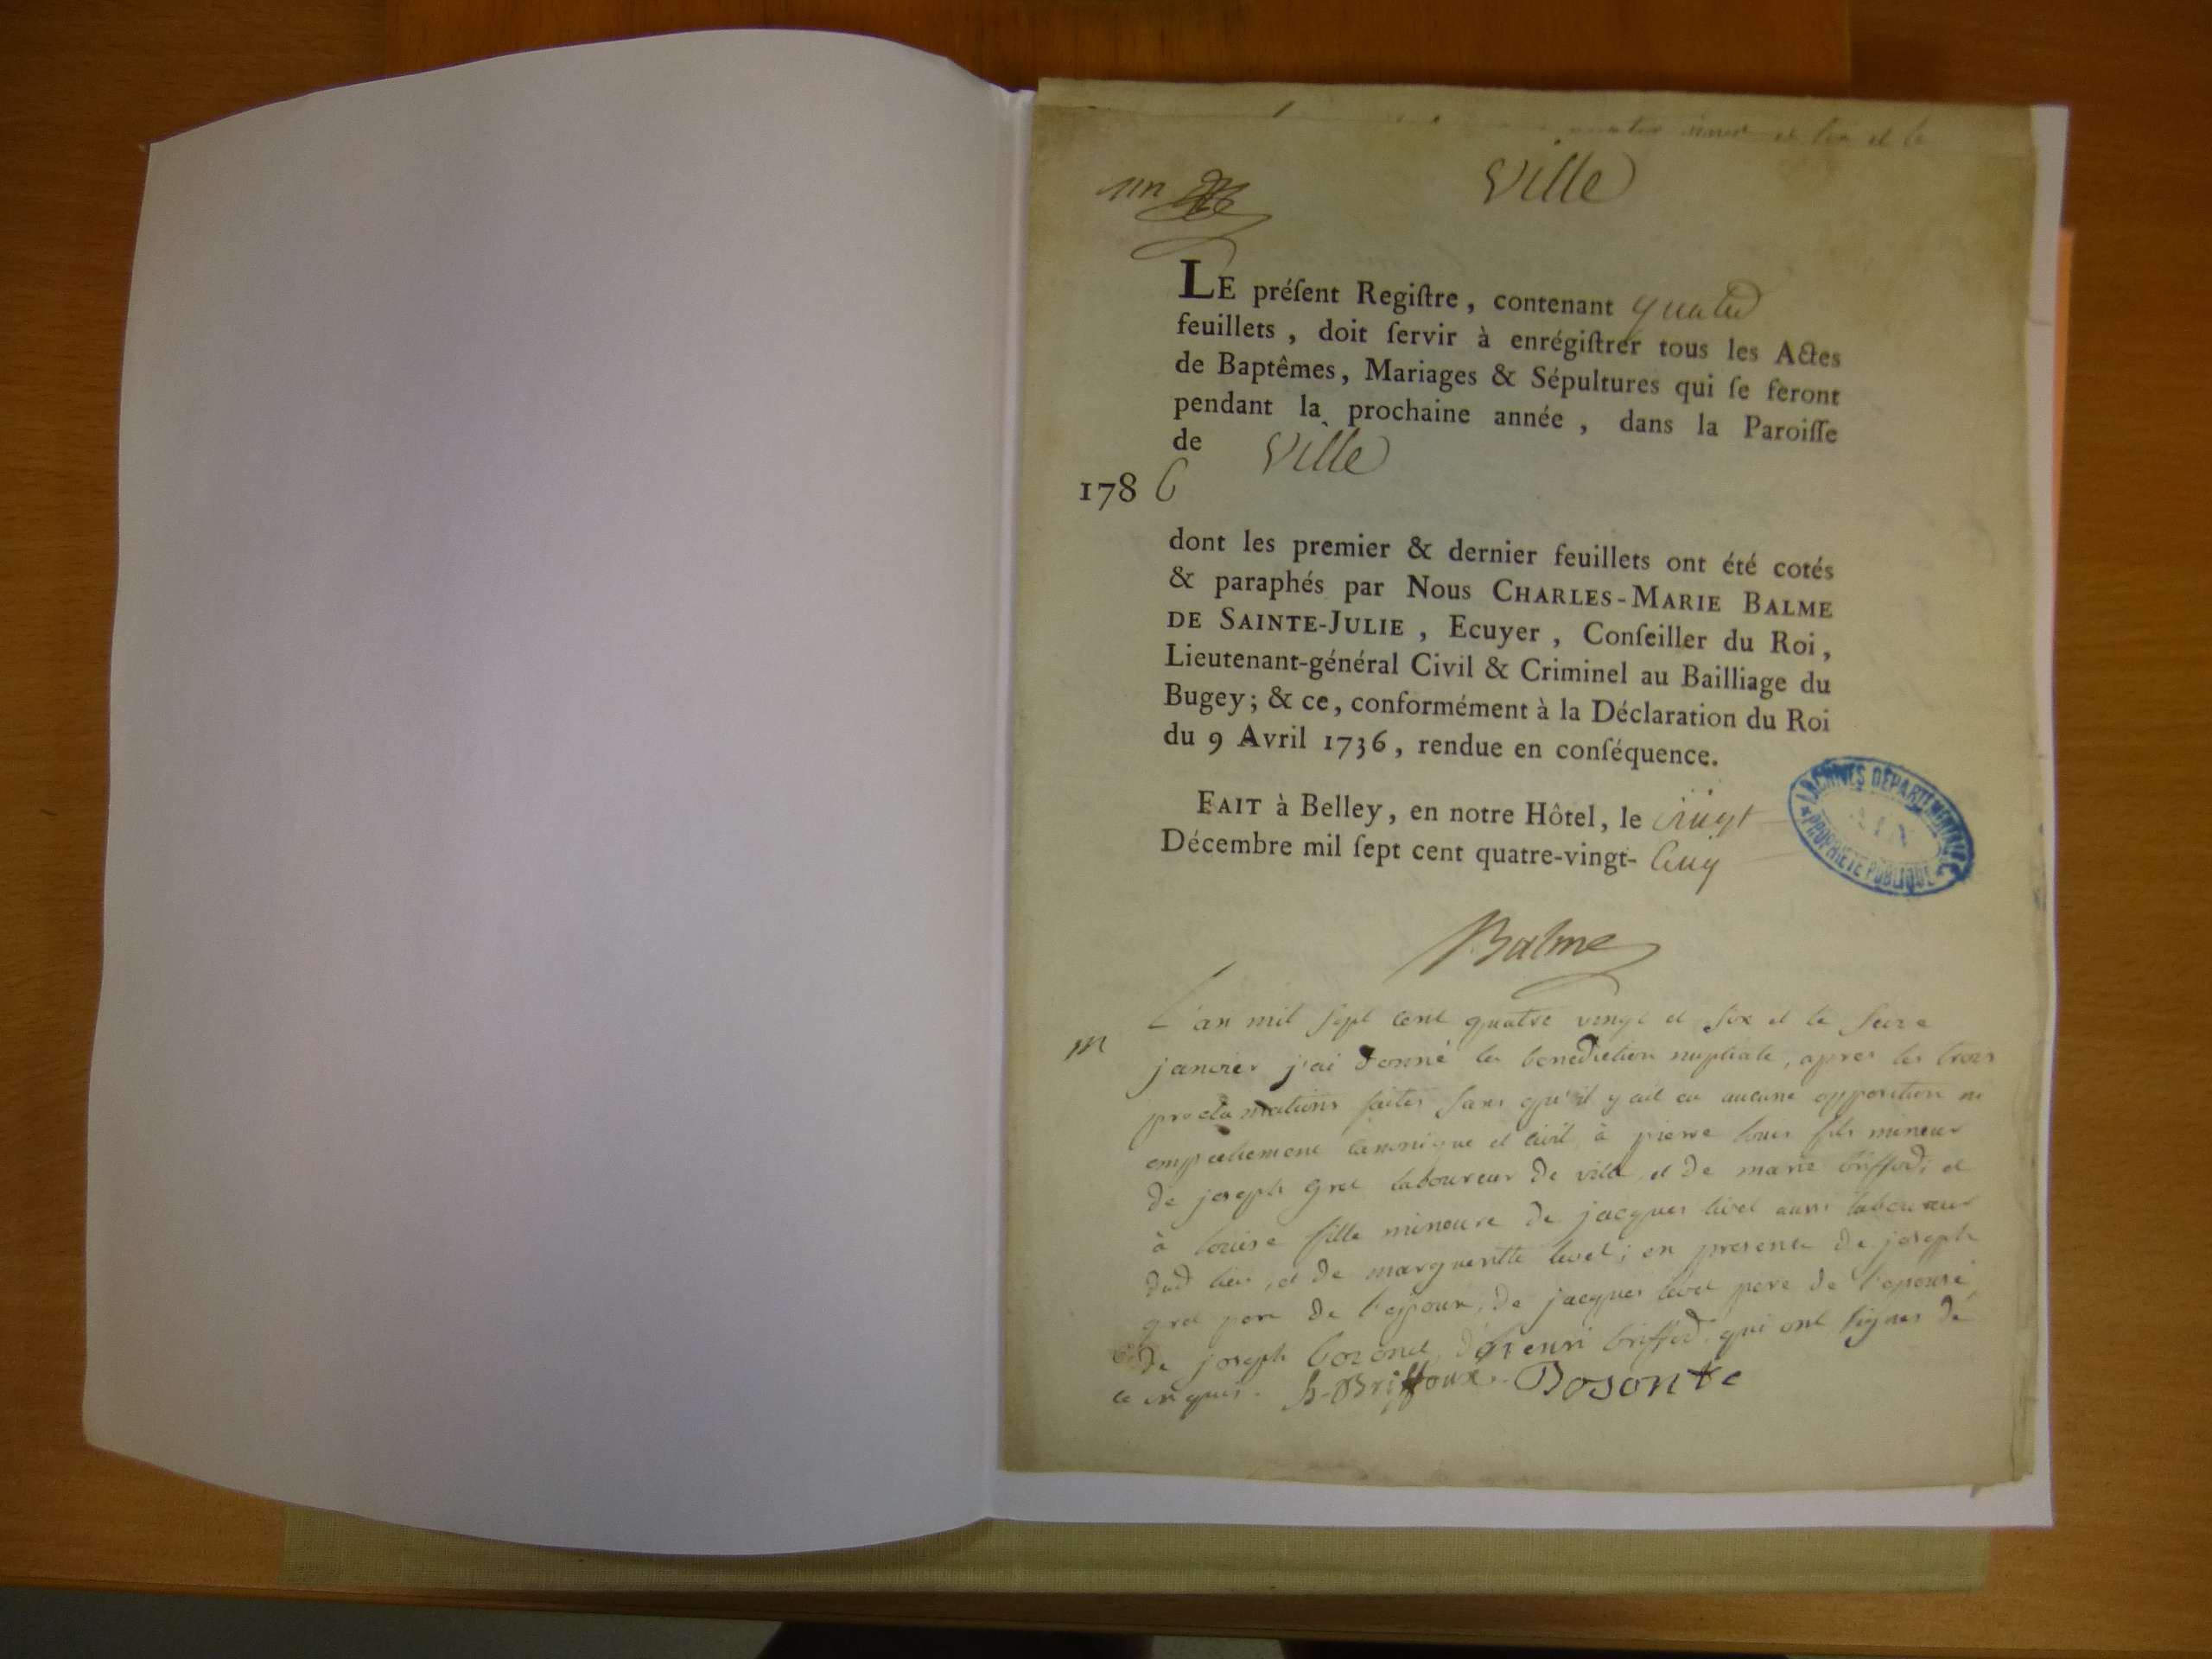 Ville
un
LE préſent Regiſtre, contenant quatre
feuillets, doit ſervir à enrégiſtrer tous les Actes
de Baptêmes, Mariages & Sépultures qui ſe feront
pendant la prochaine année, dans la Paroiſſe
de Ville
1786
dont les premier & dernier feuillets ont été cotés
& paraphés par Nous CHARLES-MARIE BALME
DE SAINTE-JULIE, Ecuyer, Conſeiller du Roi,
Lieutenant-général Civil & Criminel au Bailliage du
Bugey; & ce, conformément à la Déclaration du Roi
du 9 Avril 1736, rendue en conſéquence.
FAIT à Belley, en notre Hôtel, le vingt
Décembre mil ſept cent quatre-vingt-Cinq
ARCHIVES DÉPARTEMENTALES
AIN
PROPRIÉTÉ PUBLIQUE
Balme
m
L'an mil sept cent quatre vingt et six et le seize
janvier j'ai donné la benediction nuptiale, apres les trois
proclamations faites sans qu'il y ait eu aucune opposition ni
empechement canonique et civil à pierre louis fils mineur
de joseph gret laboureur de ville, et de marie briffod; et
à louise fille mineure de jacques livet aussi laboureur
dud lieu, et de margueritte livet; en presence de joseph
gret pere de l'epoux, de jacques livet pere de l'epouse
de joseph bozonet, d'henri briffod qui ont signes de
ce enquis. h-Briffoux. Bosonte